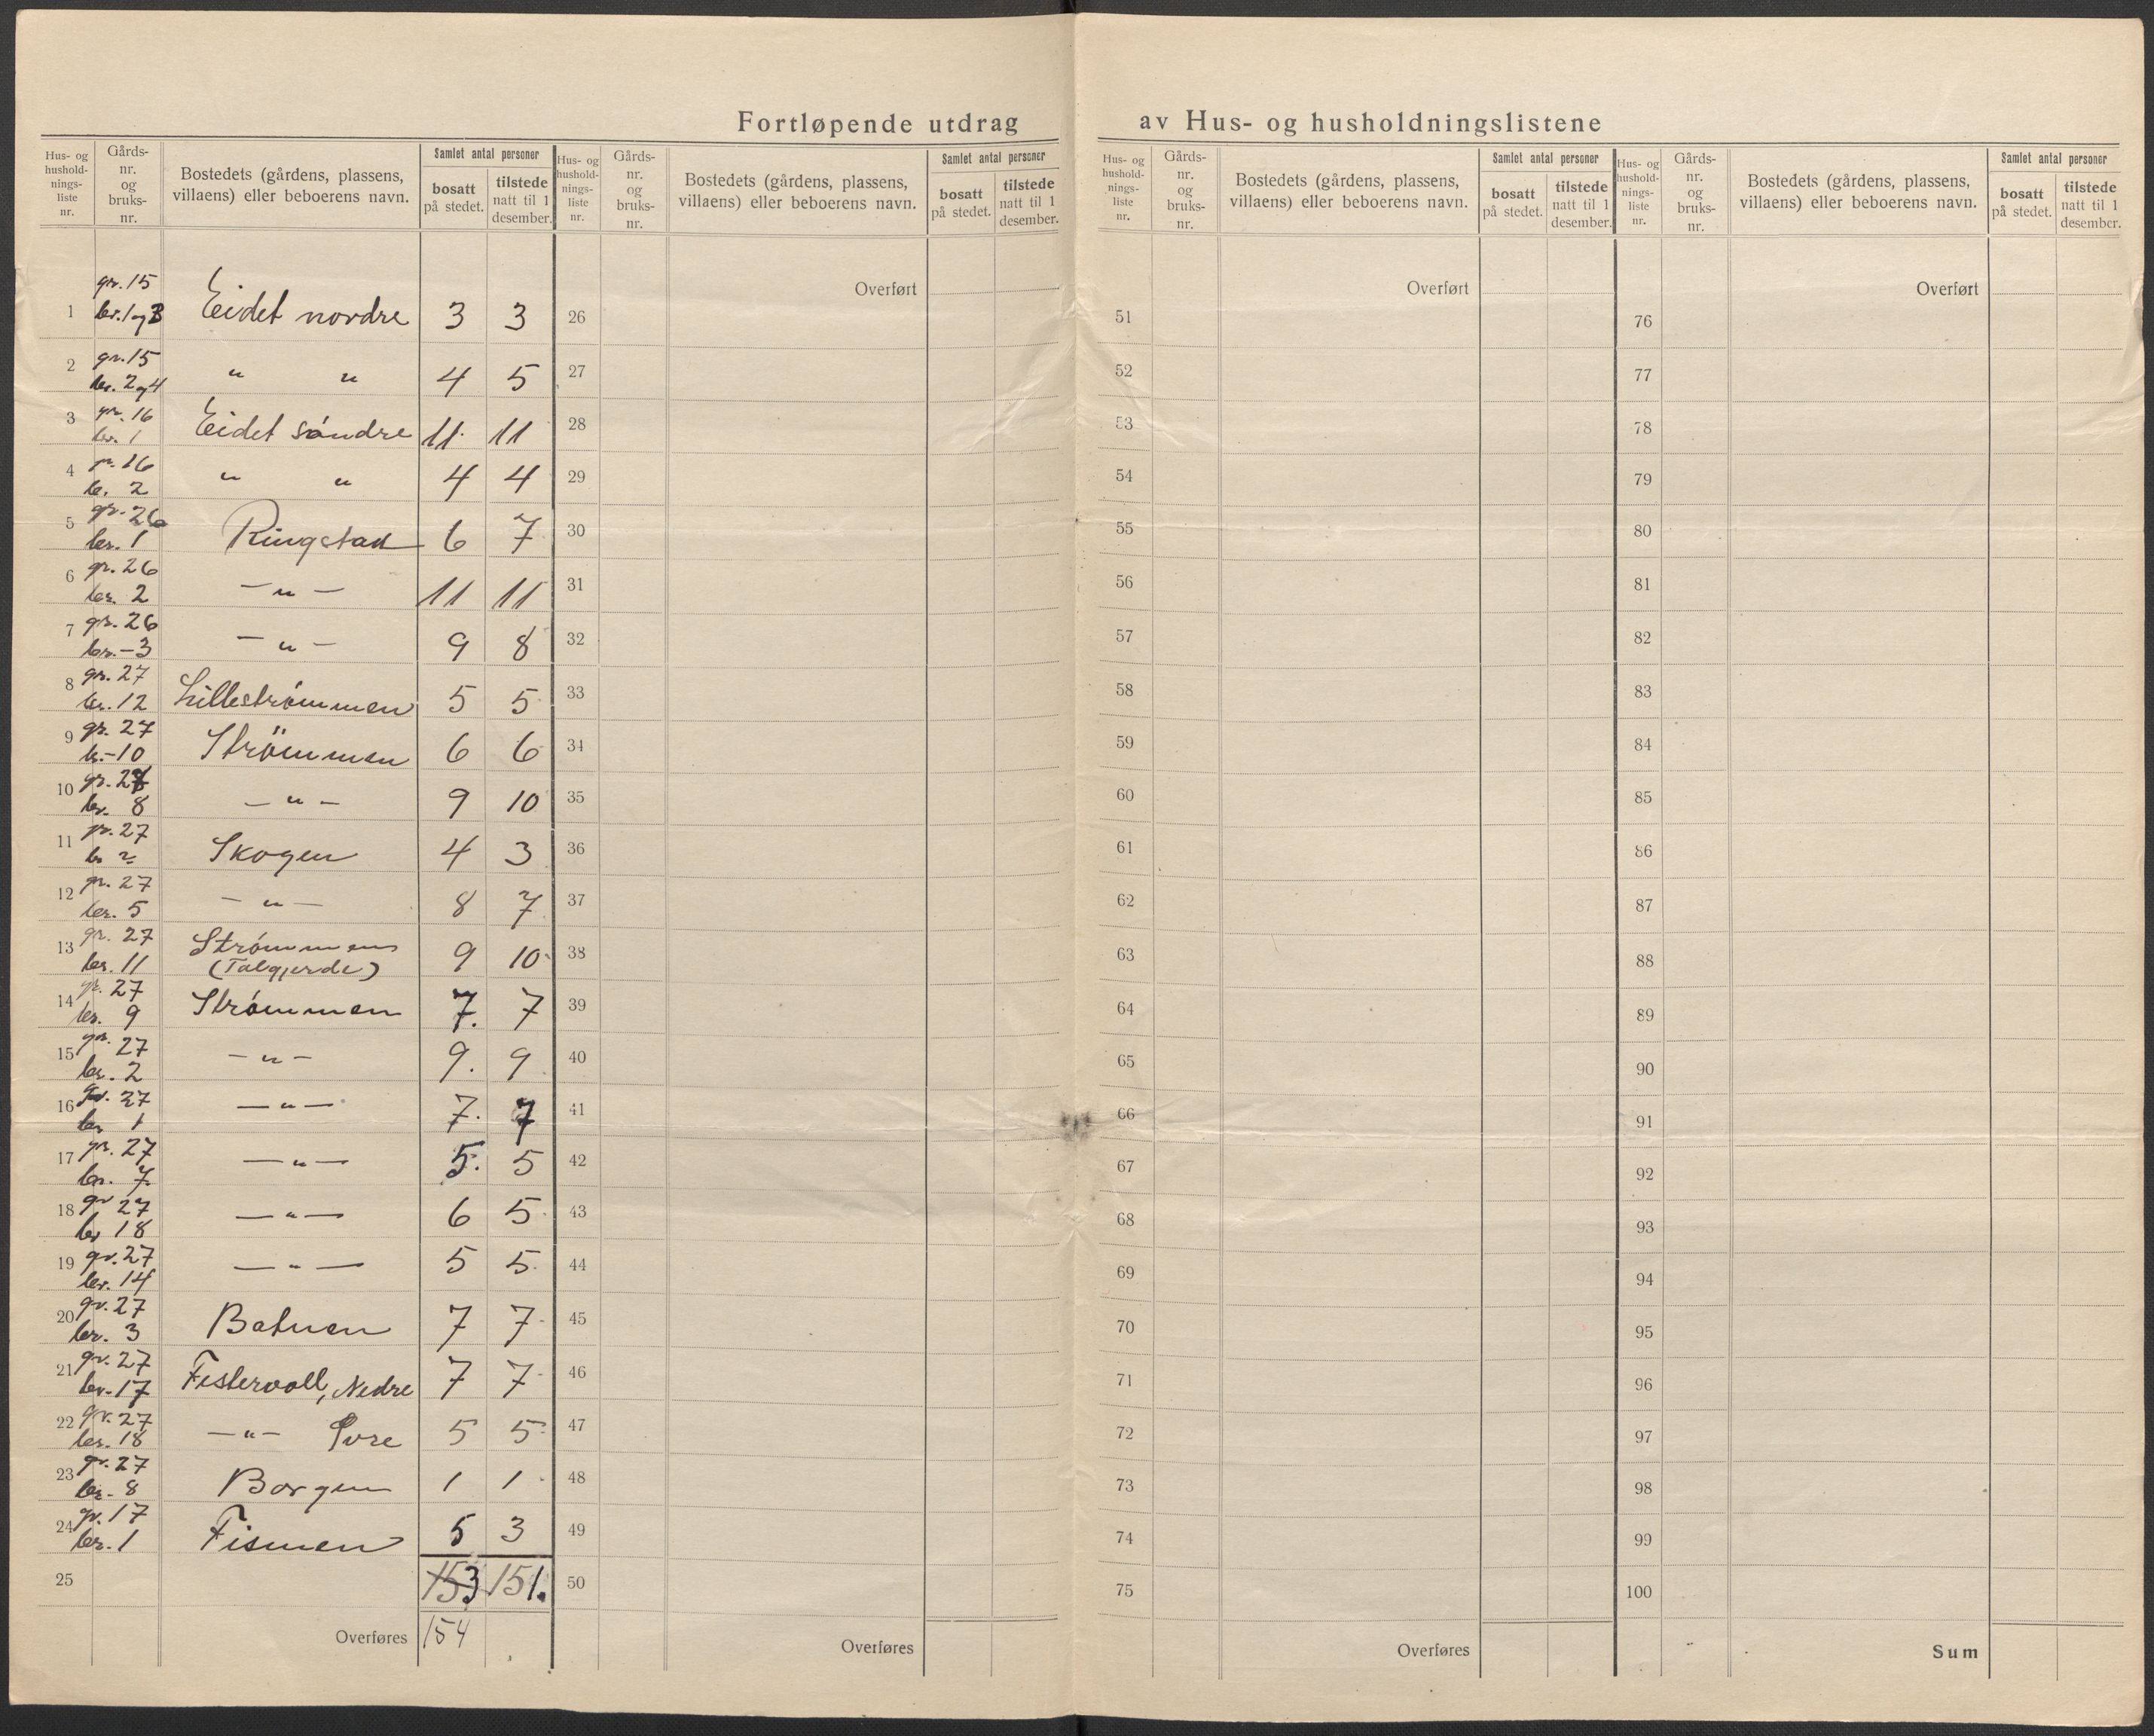 Fortløpende utdrag av Hus- og husholdningslistene
Hus- og hushold-nings-liste nr. Gårds-nr. og bruks-nr. Bostedets (gårdens, plassens, villaens) eller beboerens navn. Samlet antal personer bosatt på stedet. tilstede natt til 1 desember.
Hus- og hushold-nings-liste nr. Gårds-nr. og bruks-nr. Bostedets (gårdens, plassens, villaens) eller beboerens navn. Samlet antal personer bosatt på stedet. tilstede natt til 1 desember.
Hus- og hushold-nings-liste nr. Gårds-nr. og bruks-nr. Bostedets (gårdens, plassens, villaens) eller beboerens navn. Samlet antal personer bosatt på stedet. tilstede natt til 1 desember.
Hus- og hushold-nings-liste nr. Gårds-nr. og bruks-nr. Bostedets (gårdens, plassens, villaens) eller beboerens navn. Samlet antal personer bosatt på stedet. tilstede natt til 1 desember.
1 gr. 15 br. 1 og 3 Eidet nordre 3 3
2 gr. 15 br. 2 og 4 " " 4 5
3 gr. 16 br. 1 Eidet søndre 11 11
4 gr. 16 br. 2 " " 4 4
5 gr. 26 br. 1 Ringstad 6 7
6 gr. 26 br. 2 - " - 11 11
7 gr. 26 br. - 3 - " - 9 8
8 gr. 27 br. 12 Lillestrømmen 5 5
9 gr. 27 br. - 10 Strömmen 6 6
10 gr. 27 br. 8 - " - 9 10
11 gr. 27 br. Skogen 4 3
12 gr. 27 br. 5 - " - 8 7
13 gr. 27 br. 11 Strømmen (Talgjerde) 9 10
14 gr. 27 br. 9 Strømmen 7. 7
15 gr. 27 br. 2 - " - 9. 9
16 gr. 27 br. 1 - " - 7. 7
17 gr. 27 br. 7 - " - 5. 5
18 gr 27 br 18 - " - 6 5
19 gr. 27 br. 14 - " - 5 5
20 gr. 27 br. 3 Batnen 7 7
21 gr. 27 br. - 17 Fistervoll, Nedre 7 7
22 gr. 27 br. 18 - " - Øvre 5 5
23 gr. 27 br. - 8 Borgen 1 1
24 gr. 17 br. 1 Fismen 5 3
25 153 151.
Overføres 154
Overført
26
27
28
29
30
31
32
33
34
35
36
37
38
39
40
41
42
43
44
45
46
47
48
49
50
Overføres
Overført
51
52
53
54
55
56
57
58
59
60
61
62
63
64
65
66
67
68
69
70
71
72
73
74
75
Overføres
Overført
76
77
78
79
80
81
82
83
84
85
86
87
88
89
90
91
92
93
94
95
96
97
98
99
100
Sum